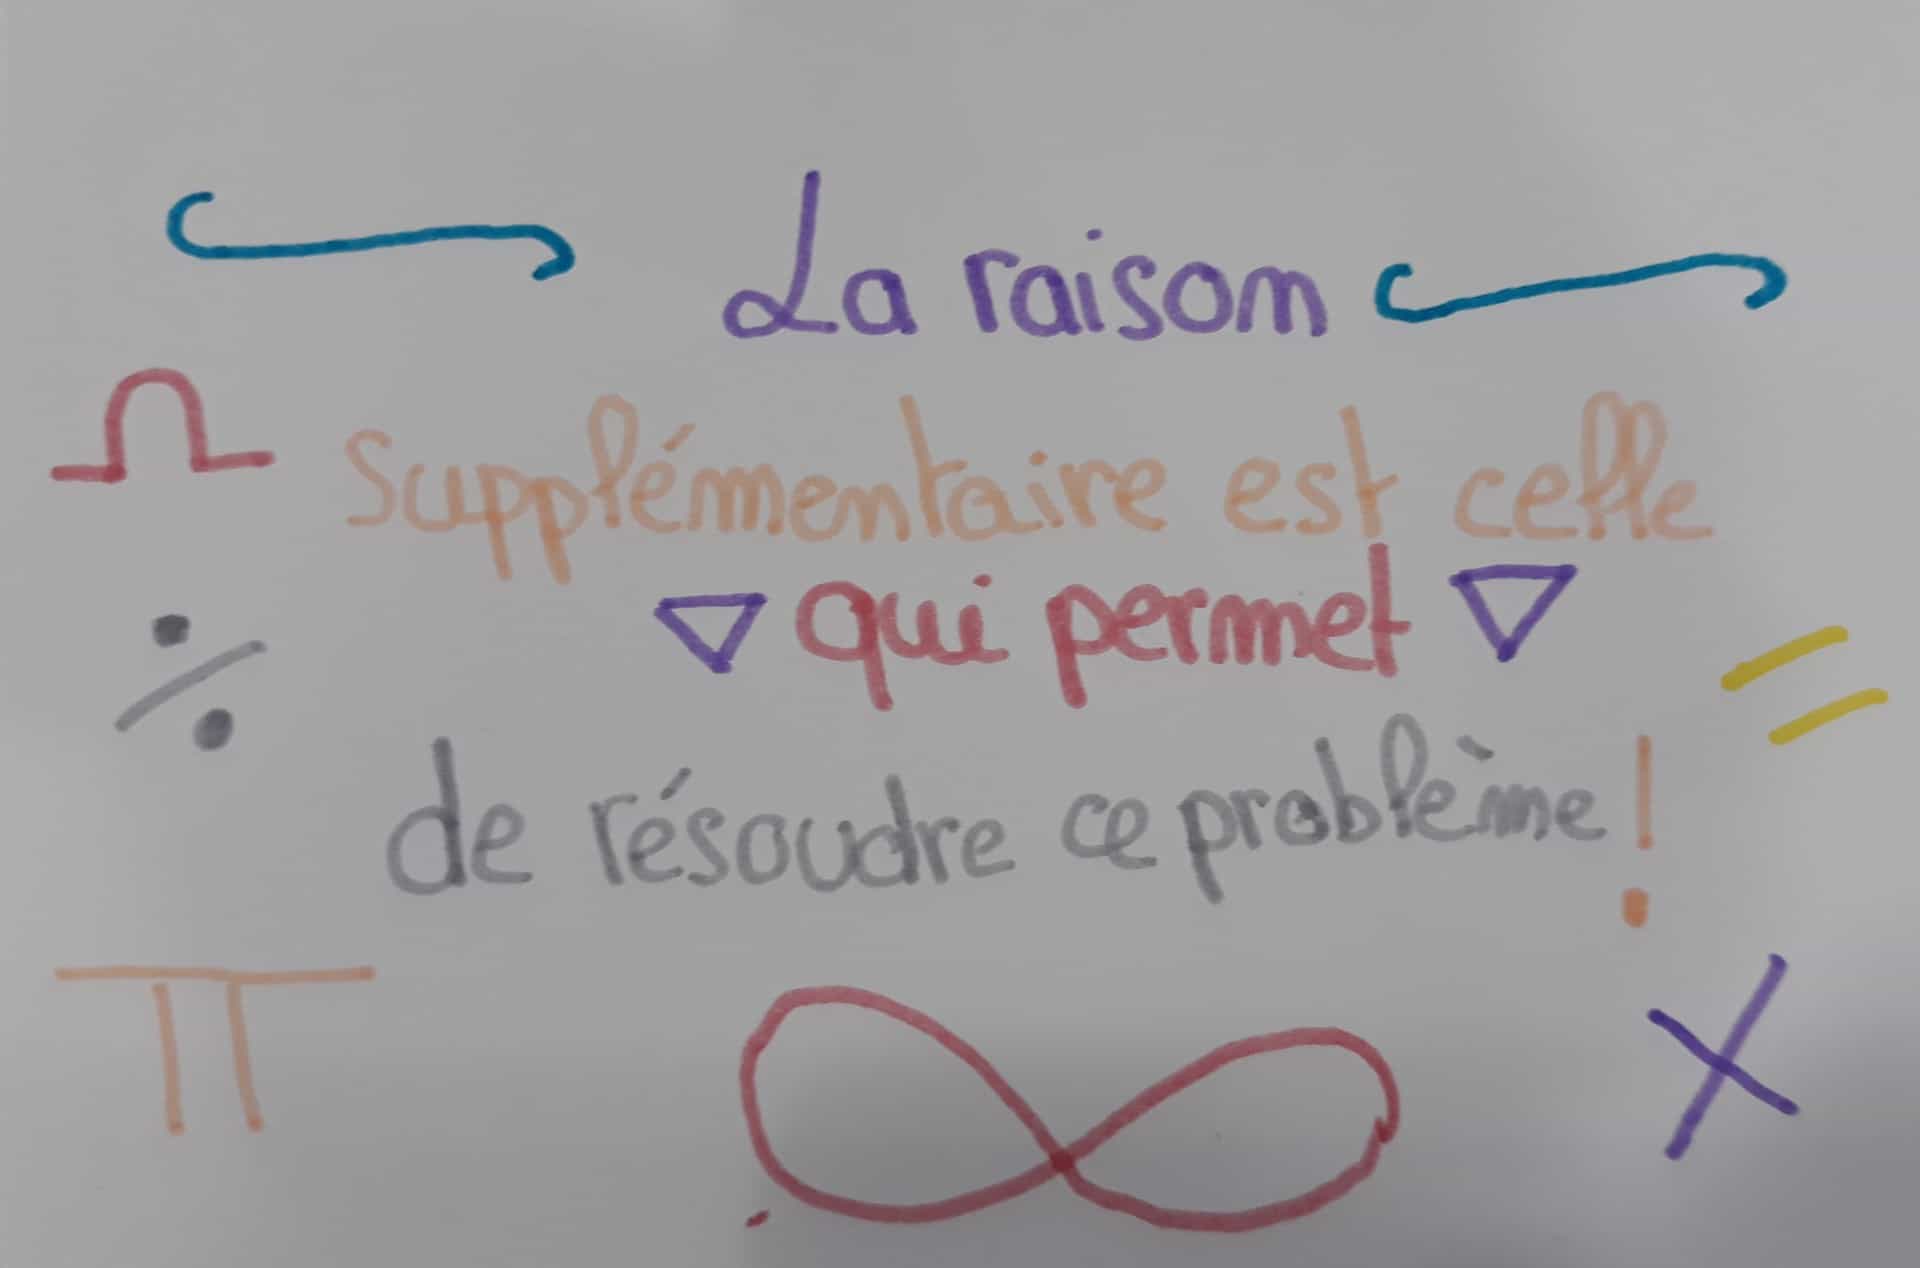 La raison
Supplémentaire est celle
qui permet
de résoudre ce problème !